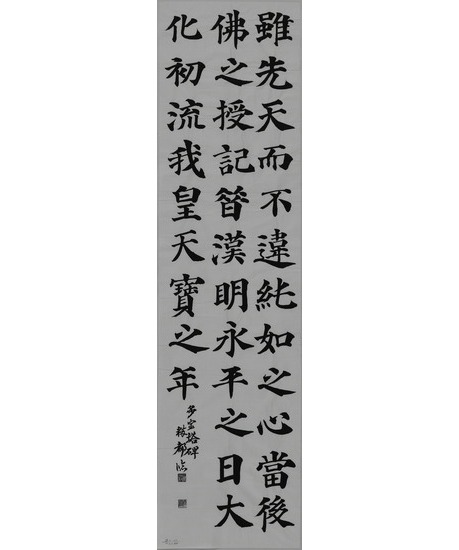 雖先天而不違純如之心當後
佛之授記昔漢明永平之日大
化初流我皇天寶之年
多宝塔碑